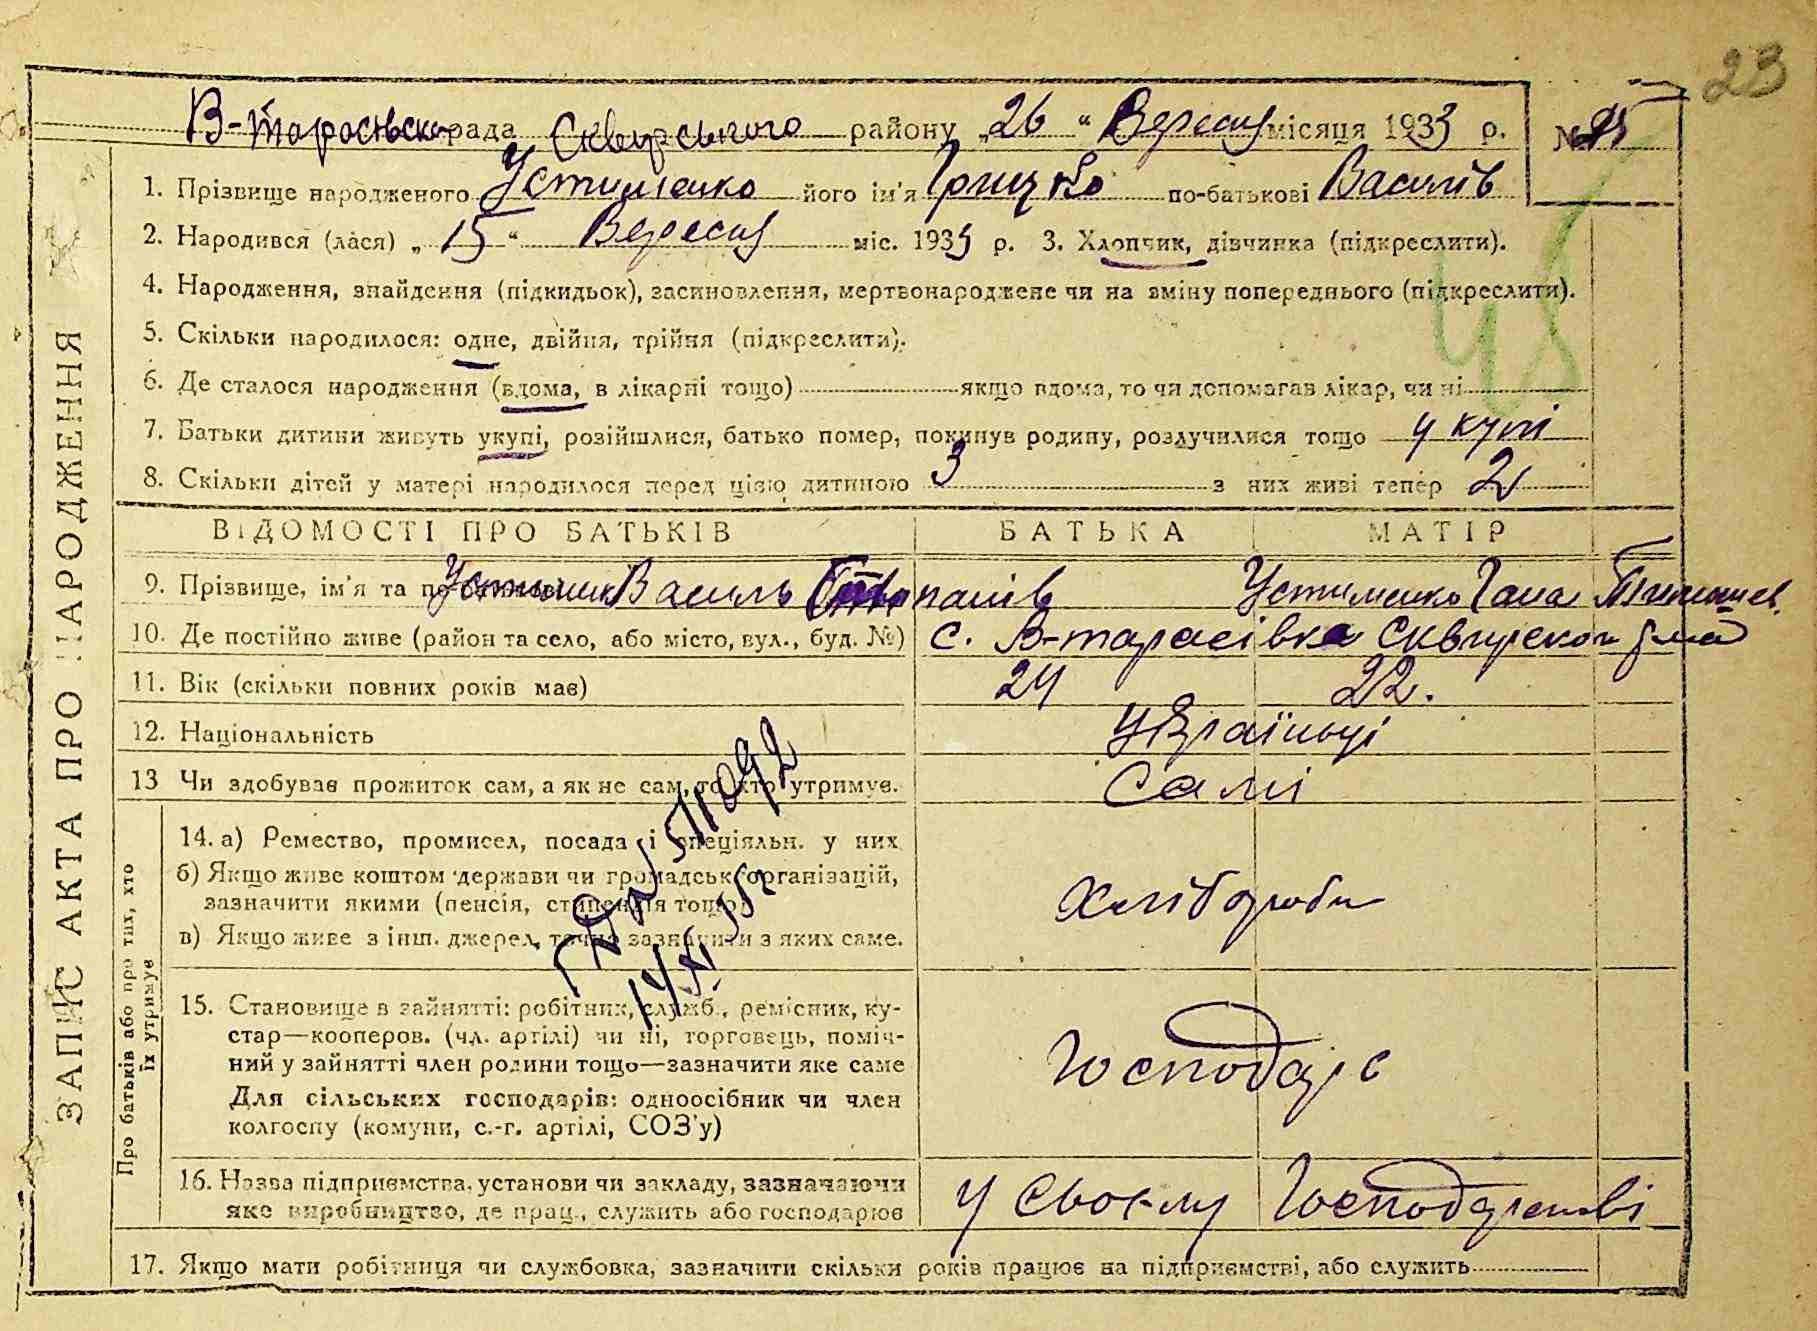 23
В-Тарасівська рада Сквирського району „26“ Вересня місяця 1933 р. № 25
ЗАПИС АКТА ПРО НАРОДЖЕННЯ
1. Прізвище народженого Устименко його ім'я Грицько по-батькові Василів
2. Народився (лася) „15“ Вересня міс. 1933 р. 3. Хлопчик, дівчинка (підкреслити).
4. Народження, знайдення (підкидьок), засиновлення, мертвонароджене чи на зміну попереднього (підкреслити).
5. Скільки народилося: одне, двійня, трійня (підкреслити).
6. Де сталося народження (вдома, в лікарні тощо) якщо вдома, то чи допомагав лікар, чи ні
7. Батьки дитини живуть укупі, розійшлися, батько помер, покинув родину, розлучилися тощо у купі
8. Скільки дітей у матері народилося перед цією дитиною 3 з них живі тепер 2
48
ВІДОМОСТІ ПРО БАТЬКІВ БАТЬКА МАТІР
9. Прізвище, ім'я та по Василь Устименко Гана
10. Де постійно живе (район та село, або місто, вул., буд. №) с. В-тарасівка Сквирского
11. Вік (скільки повних років має) 24 22.
12. Національність Українці
13 Чи здобуває прожиток сам, а як не сам, то хто утримує. Самі
Про батьків або про тих, хто
їх утримує
14. а) Ремество, промисел, посада і спеціяльн. у них
б) Якщо живе коштом держави чи громадськ. організацій,
зазначити якими (пенсія, стипендія тощо)
в) Якщо живе з інш. джерел, точно зазначити з яких саме.
Хлібороби
511092
14/XI 55 г
15. Становище в зайнятті: робітник, служб., ремісник, ку-
стар—кооперов. (чл. артілі) чи ні, торговець, поміч-
ний у зайнятті член родини тощо—зазначити яке саме
Для сільських господарів: одноосібник чи член
колгоспу (комуни, с.-г. артілі, СОЗ'у)
Господарі
16. Назва підприємства, установи чи закладу, зазначаючи
яке виробництво, де прац., служить або господарює
у своєму Господарстві
17. Якщо мати робітниця чи службовка, зазначити скільки років працює на підприємстві, або служить